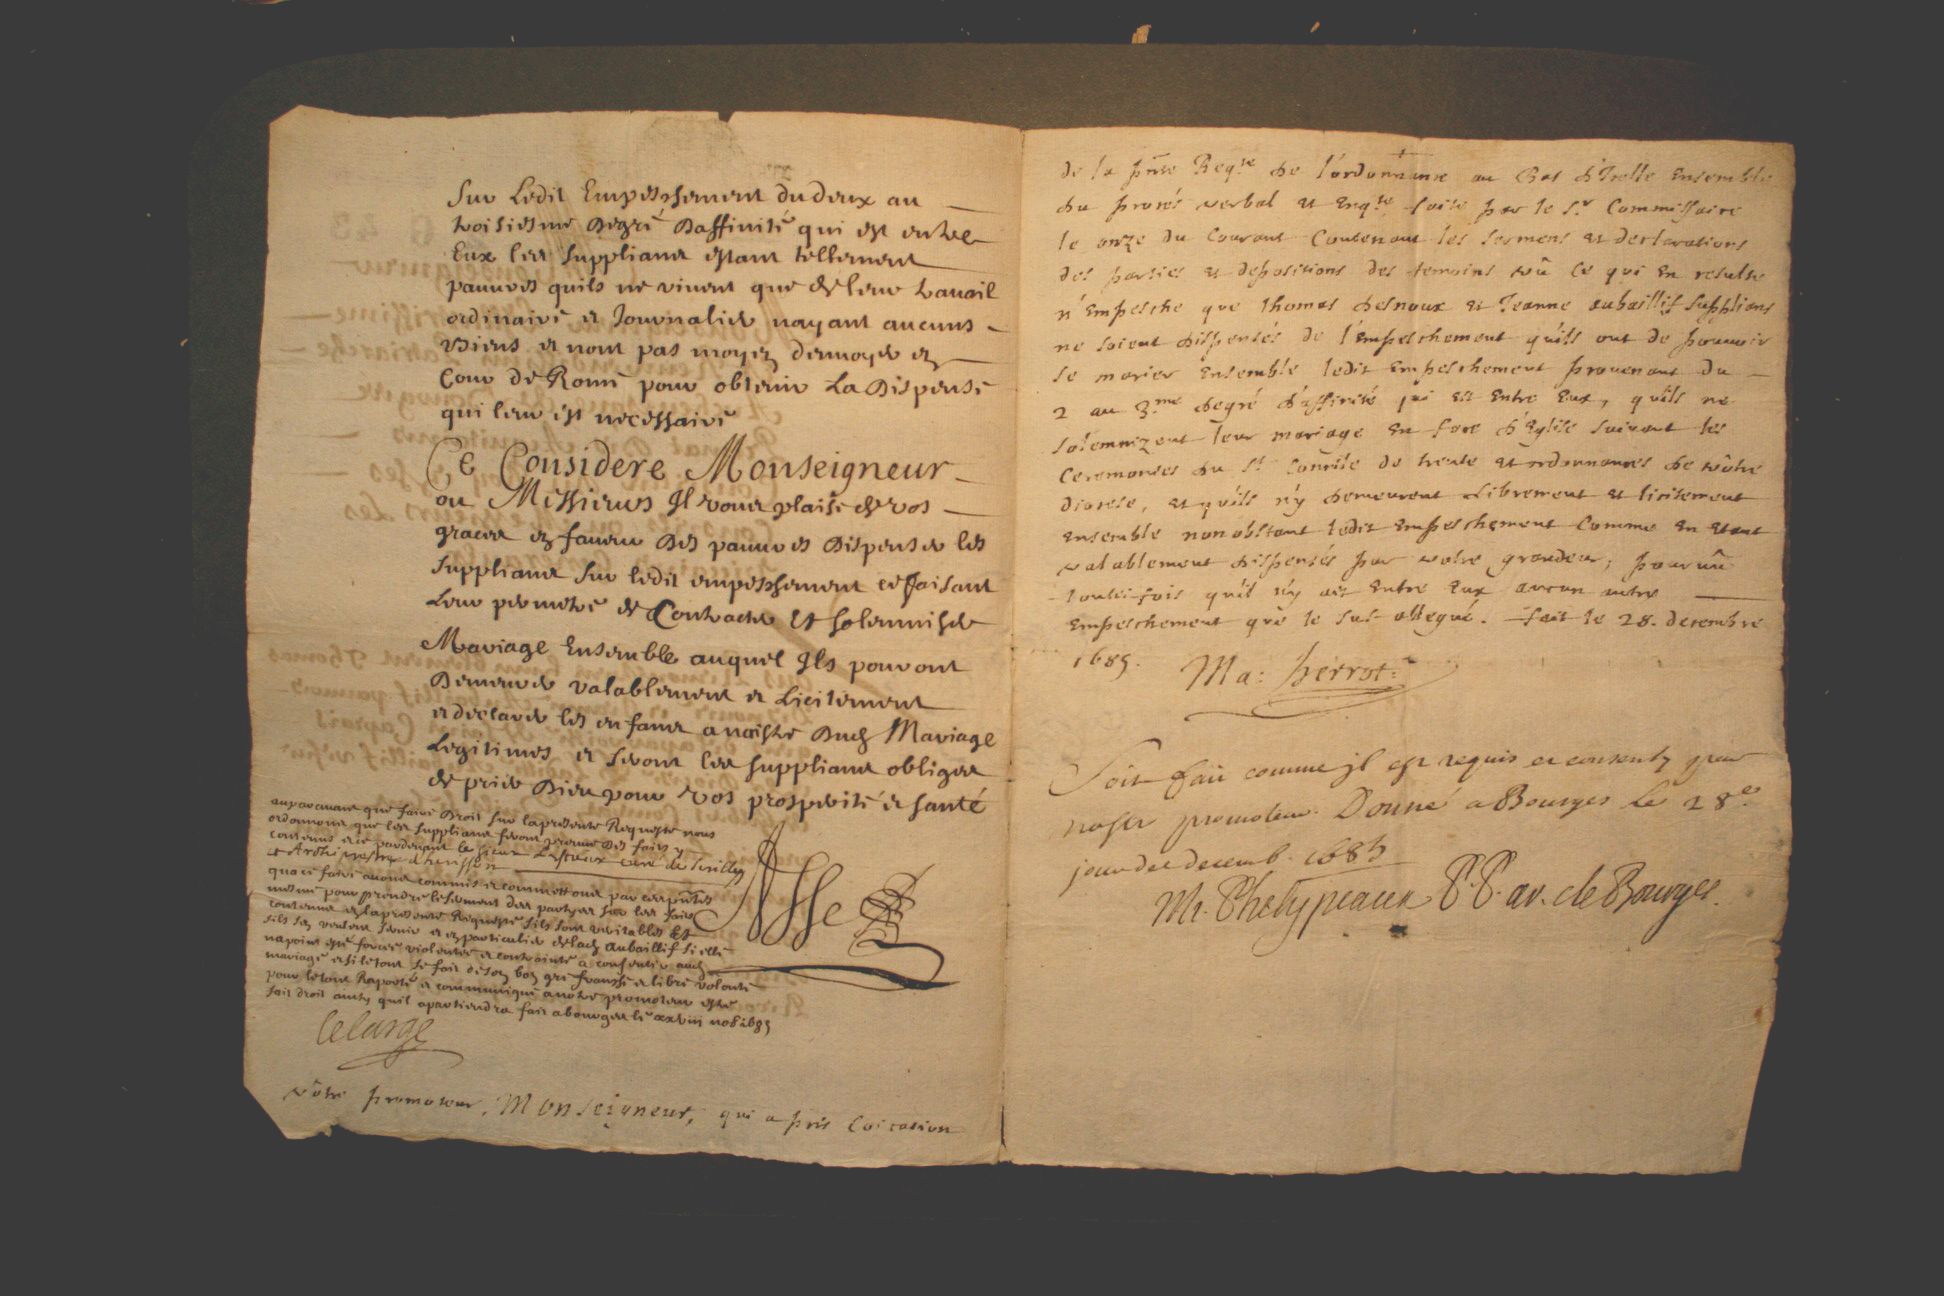 Sur Ledit Empeschement du deux au
troisiesme Degré Daffinité qui est entre
Eux les suppliants estant tellement
pauures quils ne viuent que de leur trauail
ordinaire et Journalier nayant aucuns
Biens et nont pas moyen denuoyer en
Cour de Rome pour obtenir La Dispense
qui leur est necessaire
Ce Consideré Monseigneur
ou Messieurs Il vous plaise de vos
graces en faueur Des pauures Dispenser les
suppliants sur ledit empeschement ce faisant
Leur permettre de Contracter Et solemniser
Mariage Ensemble auquel Ils pouront
Demeurer valablement et Licitement
et declarer les enfans a naistre Dud Mariage
Legitimes et seront les suppliants obligez
de prier Dieu pour vos prosperité et santé
auparauant que faire Droit sur la presente Requeste nous
ordonnons que les suppliants feront preuue des faits y
contenus et ce pardeuant le sieur curé de
et Archiprestre
qua ce faire auons commis et commettons par ces pntes
mesme pour prendre le serment des partyes sur les faits
contenus en la presente Requeste sils sont veritables Et
sils sen veulent seruir et en particulier de lad aubaillif si elle
na point esté forcée violentée et contrainte a consentir aud
mariage et si le tout se fait de son bon gré franche et libre volonté
pour le tout Raporté et communiqué a notre promoteur estre
fait droit ainsy quil apartiendra fait a bourges le xxviii nob 1685
Lelarge
vôtre promoteur, Monseigneur, qui a pris
de la pnte Reqte de l'ordonnance au Bas d'Icelle Ensemble
du procés verbal et Enqte faite par le Sr Commissaire
le onze du Courant Contenant les sermens et declarations
des parties et depositions des temoins vû Ce qui En resulte
n'Empesche que Thomas desnoux et Jeanne aubaillif supplians
ne soient dispensés de l'Empeschement qu'ils ont de pouuoir
se marier Ensemble ledit Empeschement prouenant du
2 au 3.me degré d'affinité qui est Entre Eux, qu'ils ne
solemnizent leur mariage En face d'Eglise suivant les
Ceremonies du St Concile de trente et ordonnances de vôtre
diocese, et qu'ils n'y demeurent Librement et licitement
Ensemble nonobstant ledit Empeschement Comme En etant
valablement dispensés par votre grandeur, pourvû
toutefois qu'il n'y ait Entre Eux aucun autre
Empeschement que le sus allegué. fait le 28. decembre
1685. Ma: perrot.
Soit fait comme il est requis et consenty par
nostre promoteur. Donné a Bourges Le 28e
jour de decemb. 1685
Mr. Phelypeaux P. P. ar. de Bourges.